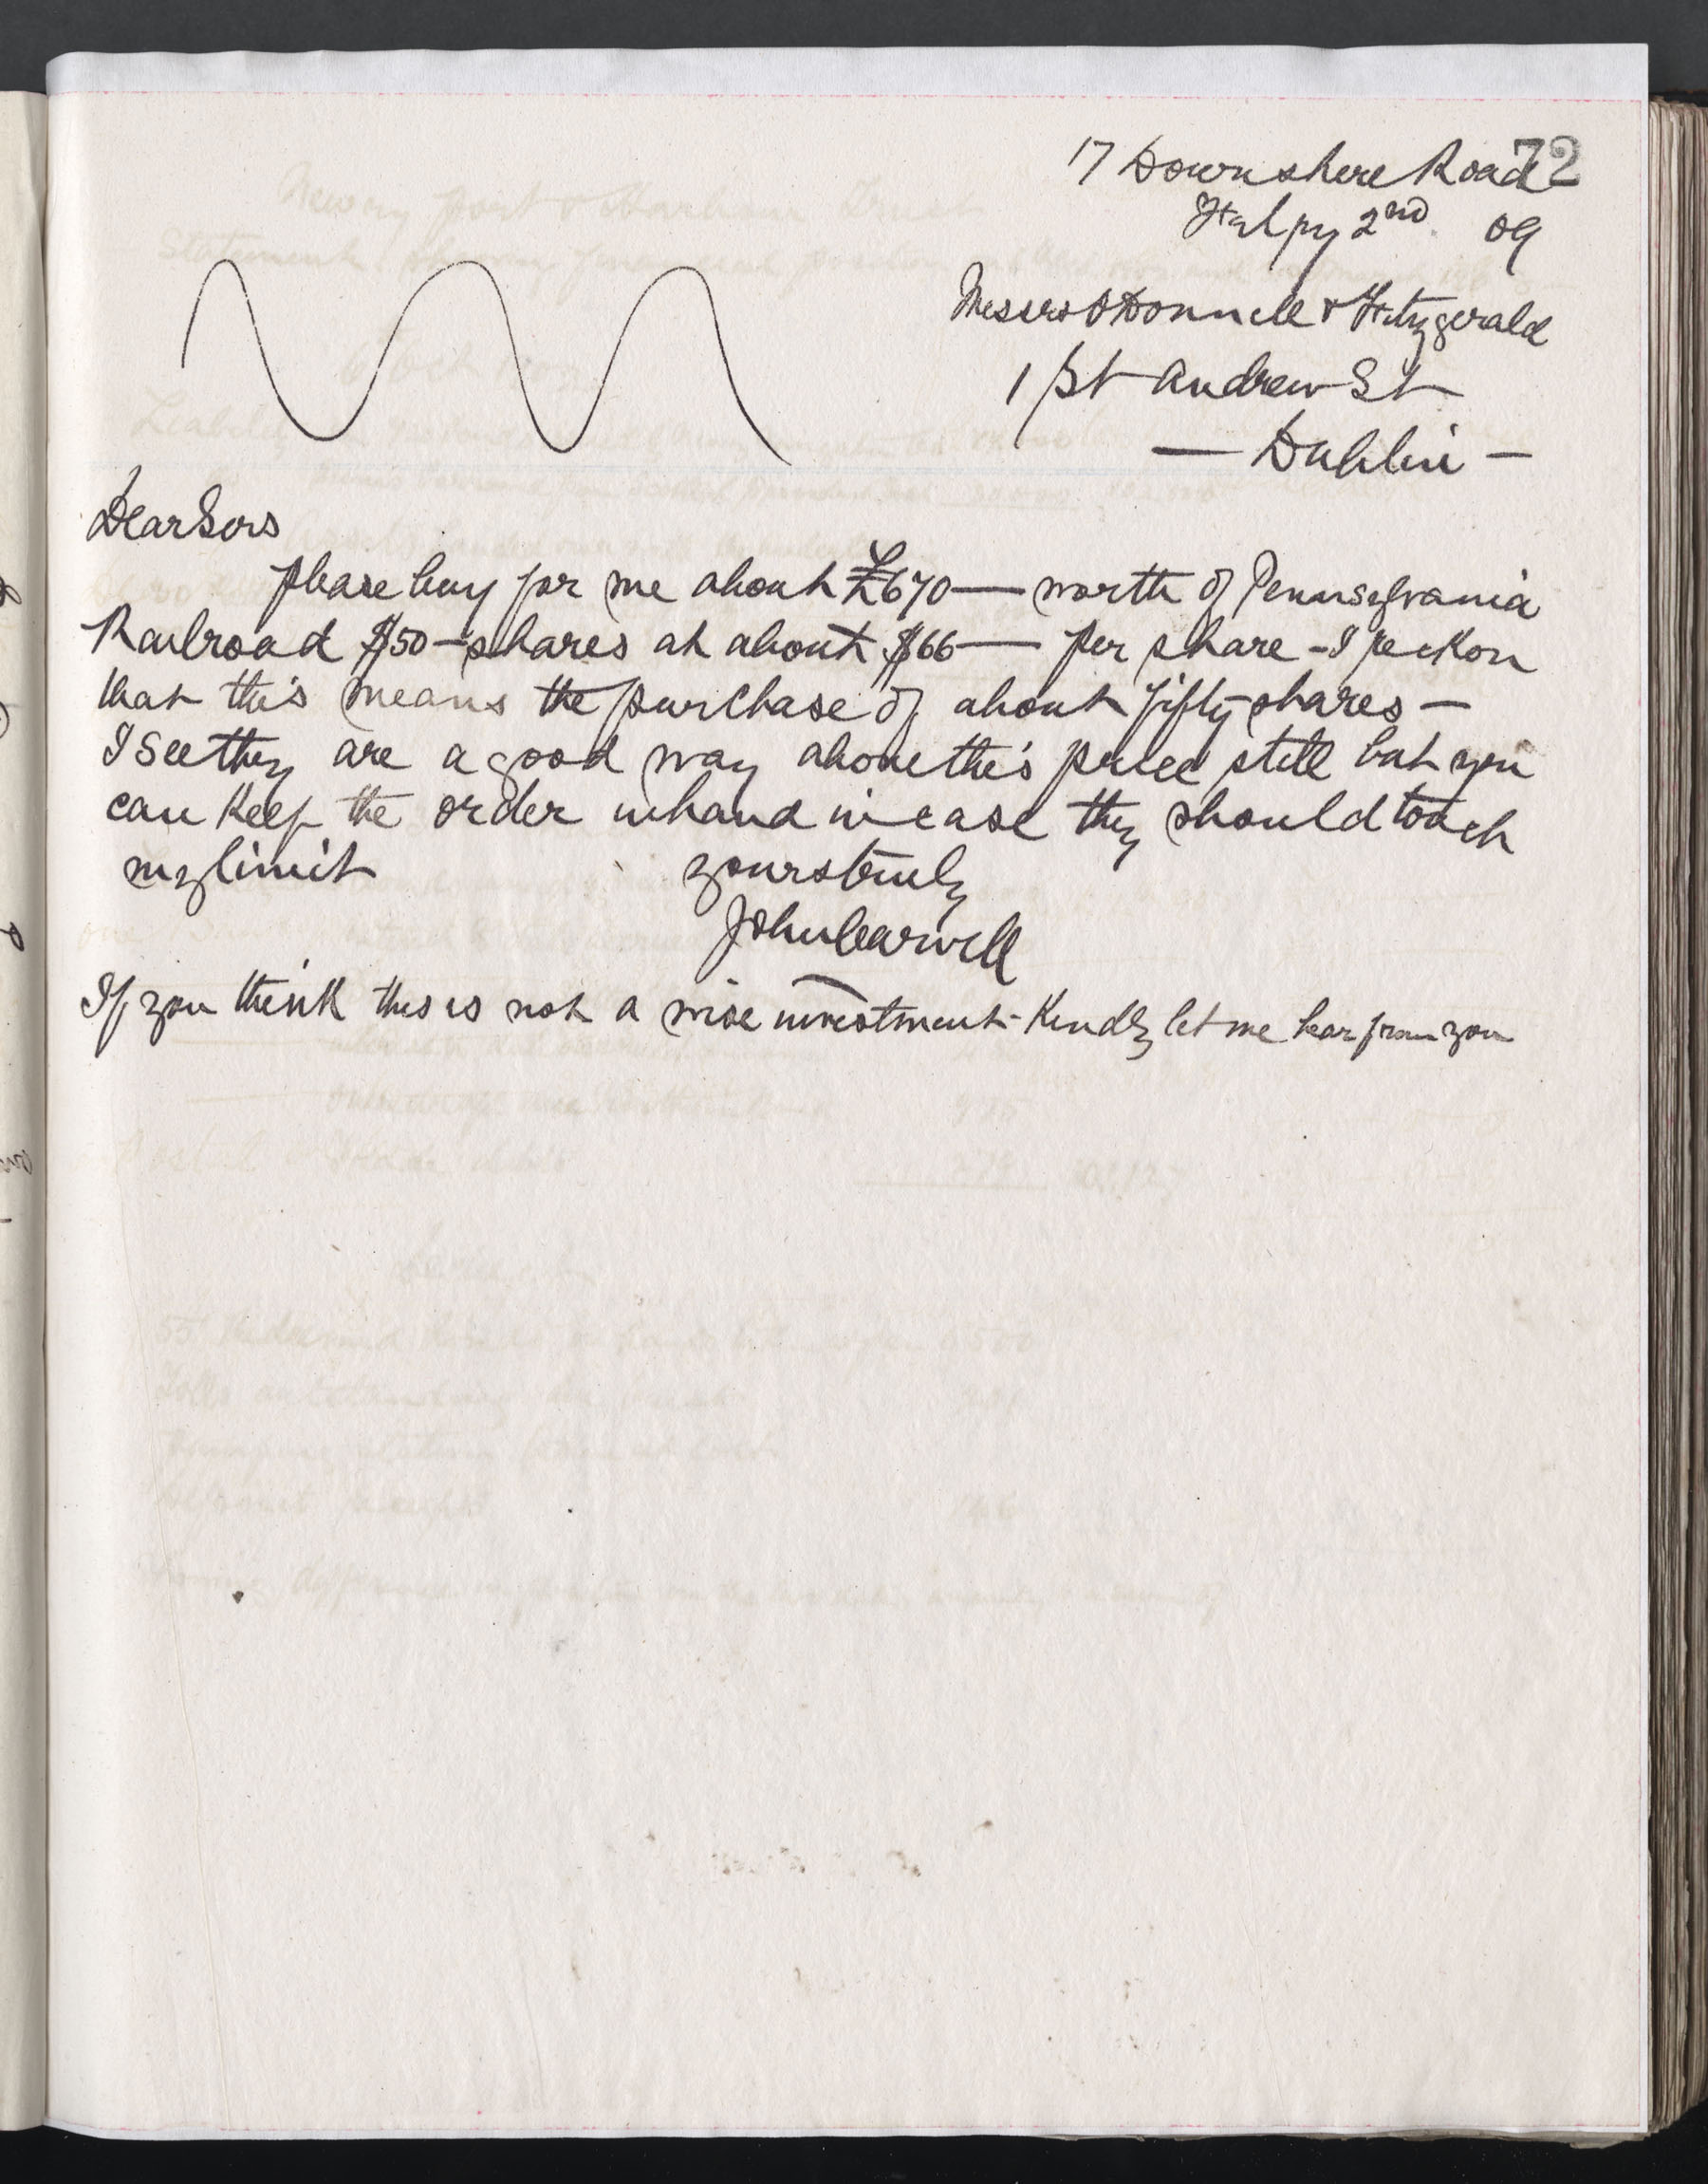 72
17 Downshere Road
2nd 09
Messrs O'Donnell & Fitzgerald
1 St Andrew St
— Dublin —
Dear Sirs
please buy for me about £670 — worth of Pennsylvania
Railroad $50 — shares at about $66 — per share - I reckon
that this means the purchase of about fifty shares —
I see they are a good way above this price still but you
can keep the order in hand in case they should touch
my limit yours truly
John Carvell
If you think this is not a wise investment - Kindly let me hear from you